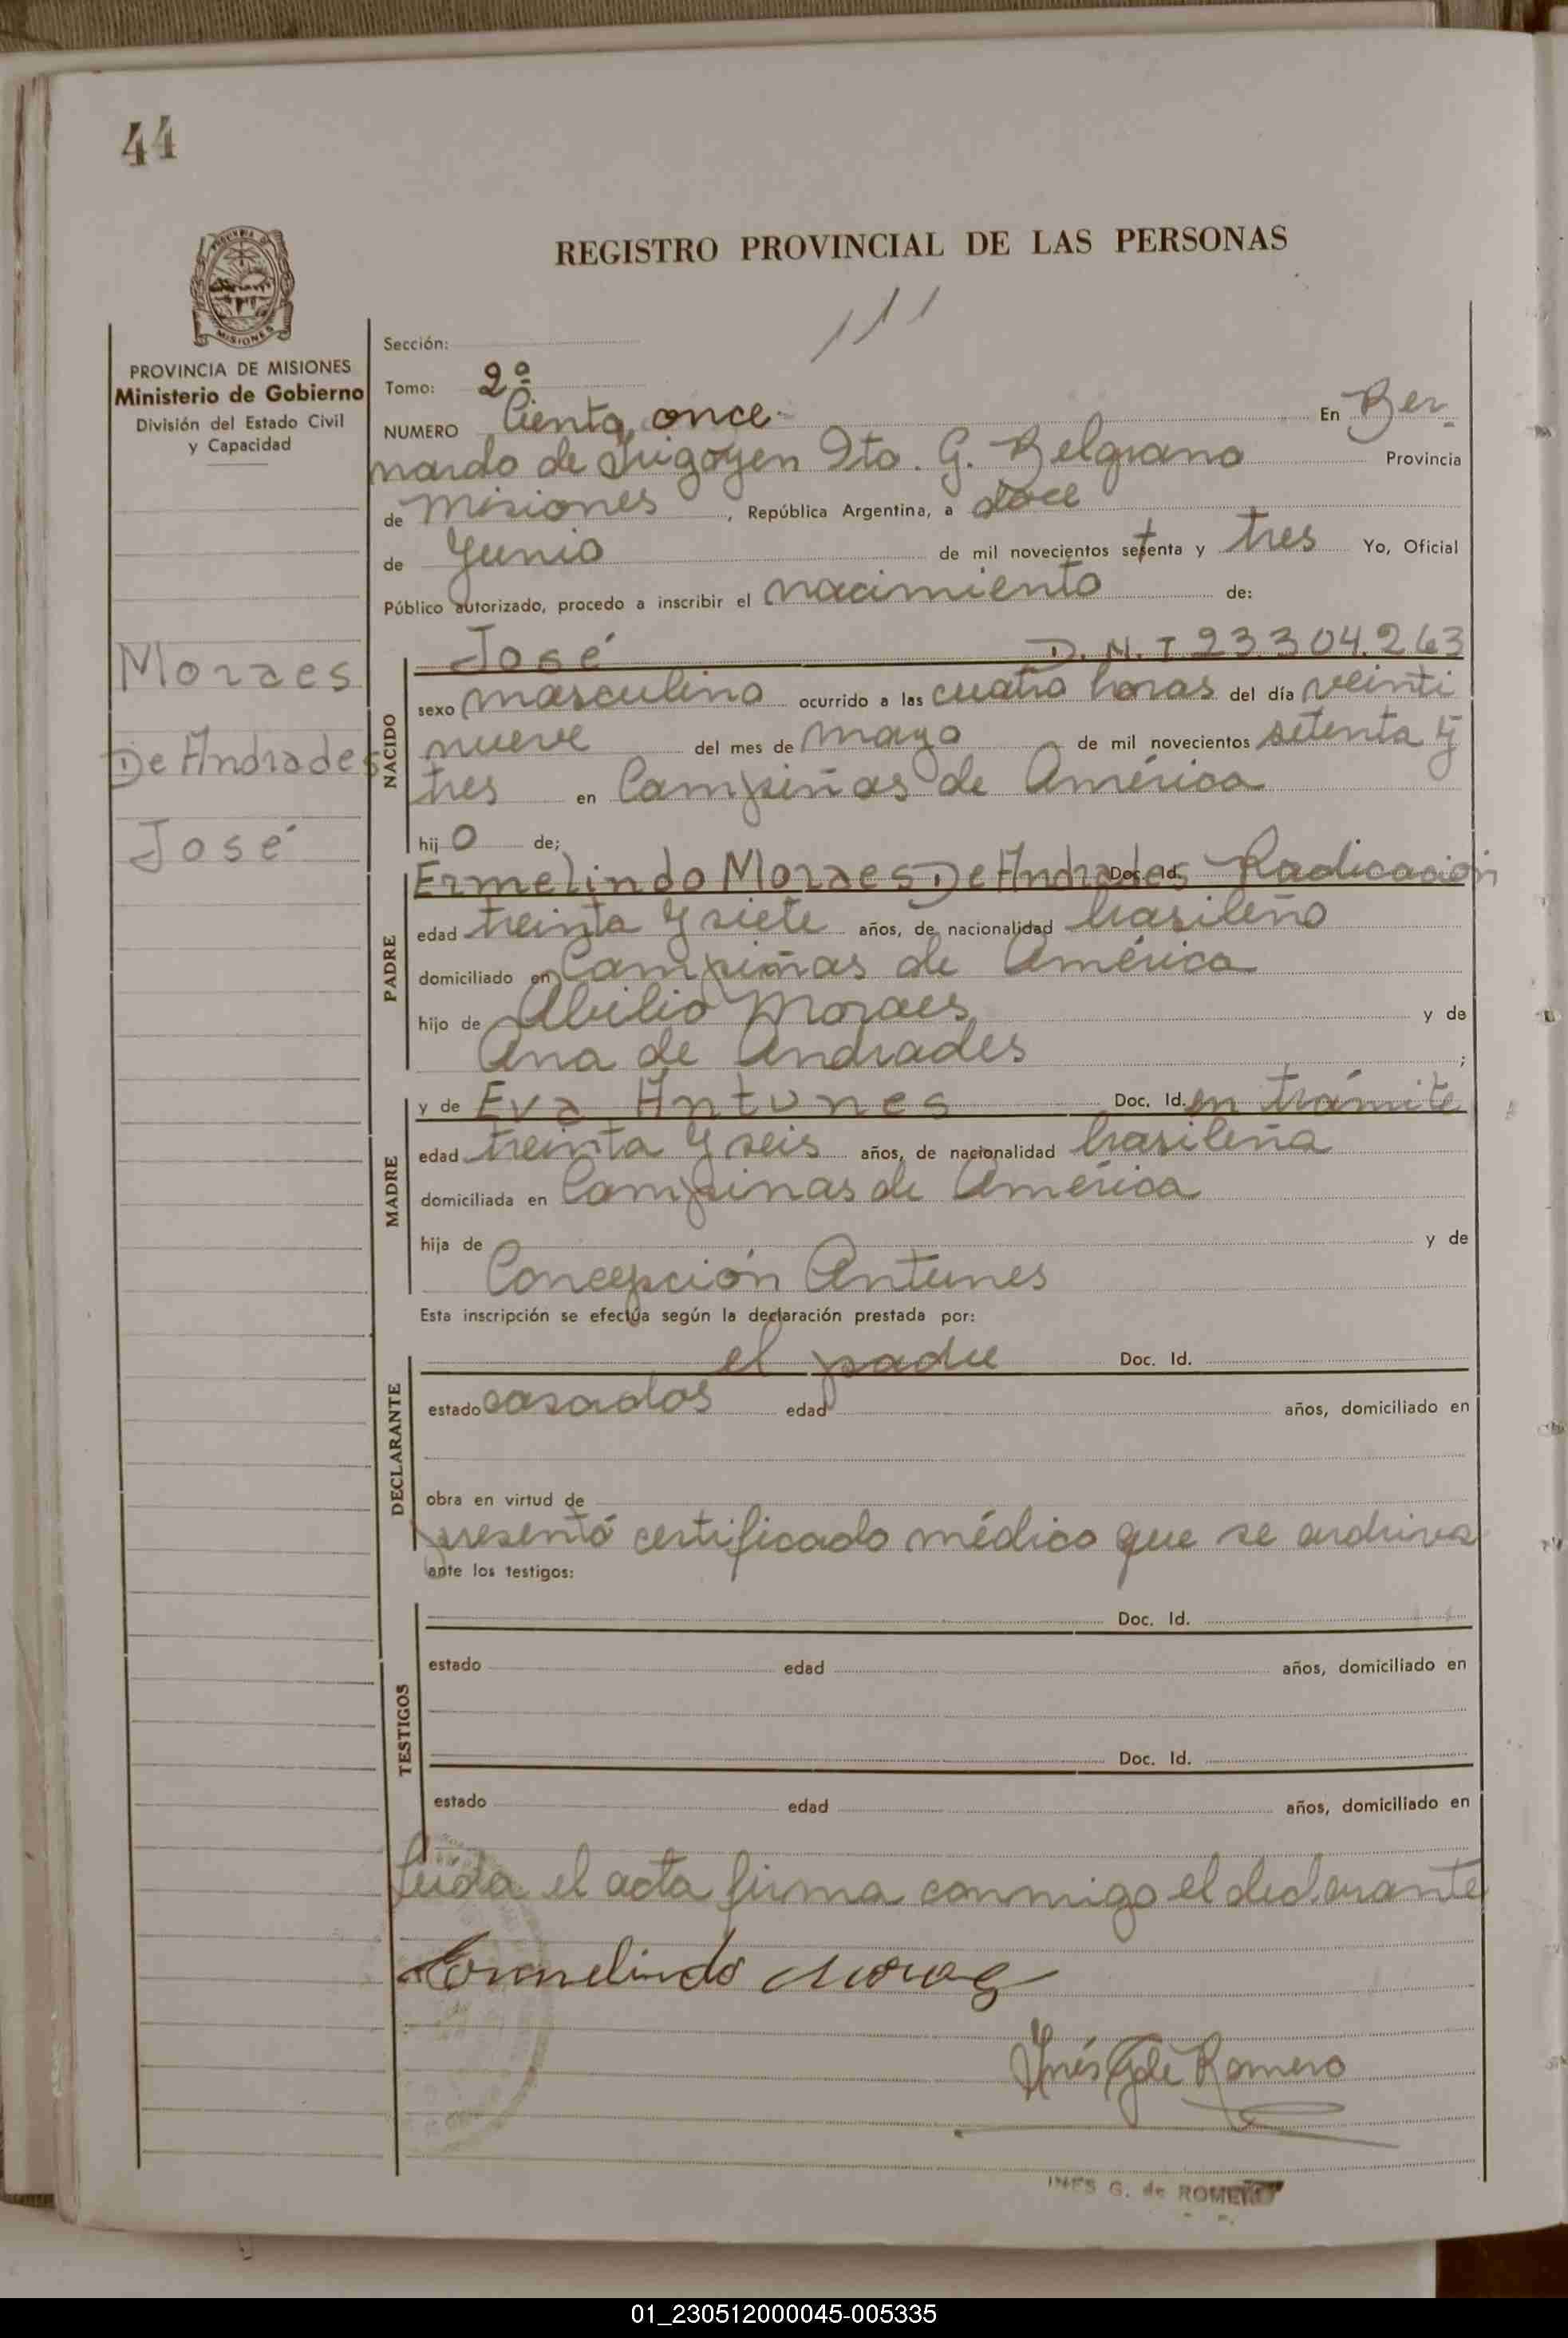 44
REGISTRO PROVINCIAL DE LAS PERSONAS
111
MISIONES
PROVINCIA DE MISIONES
Ministerio de Gobierno
División del Estado Civil
y Capacidad
Moraes
De Andrades
José
Sección:
Tomo: 2º
NUMERO Ciento once En Ber-
nardo de Irigoyen Dto. G. Belgrano Provincia
de Misiones, República Argentina, a doce
de Junio de mil novecientos setenta y tres Yo, Oficial
Público autorizado, procedo a inscribir el nacimiento de:
NACIDO
José D.N.I 23.304.263
sexo masculino ocurrido a las cuatro horas del día veinti
nueve del mes de mayo de mil novecientos setenta y
tres en Campiñas de América
hijo de;
PADRE
Ermelindo Moraes De Andrades Doc. Id. Radicación
edad treinta y siete años, de nacionalidad brasileño
domiciliado en Campiñas de América
hijo de Abilio Moraes y de
Ana de Andrades ;
MADRE
y de Eva Antunes Doc. Id. en trámite
edad treinta y seis años, de nacionalidad brasileña
domiciliada en Campinas de América
hija de y de
Concepción Antunes
Esta inscripción se efectúa según la declaración prestada por:
DECLARANTE
el padre Doc. Id.
estado casados edad años, domiciliado en
obra en virtud de
presentó certificado médico que se archiva
ante los testigos:
TESTIGOS
Doc. Id.
estado edad años, domiciliado en
Doc. Id.
estado edad años, domiciliado en
Leída el acta firma conmigo el declarante
Ermelindo Moraes
Inés G de Romero
INES G. de ROMERO
01_230512000045-005335